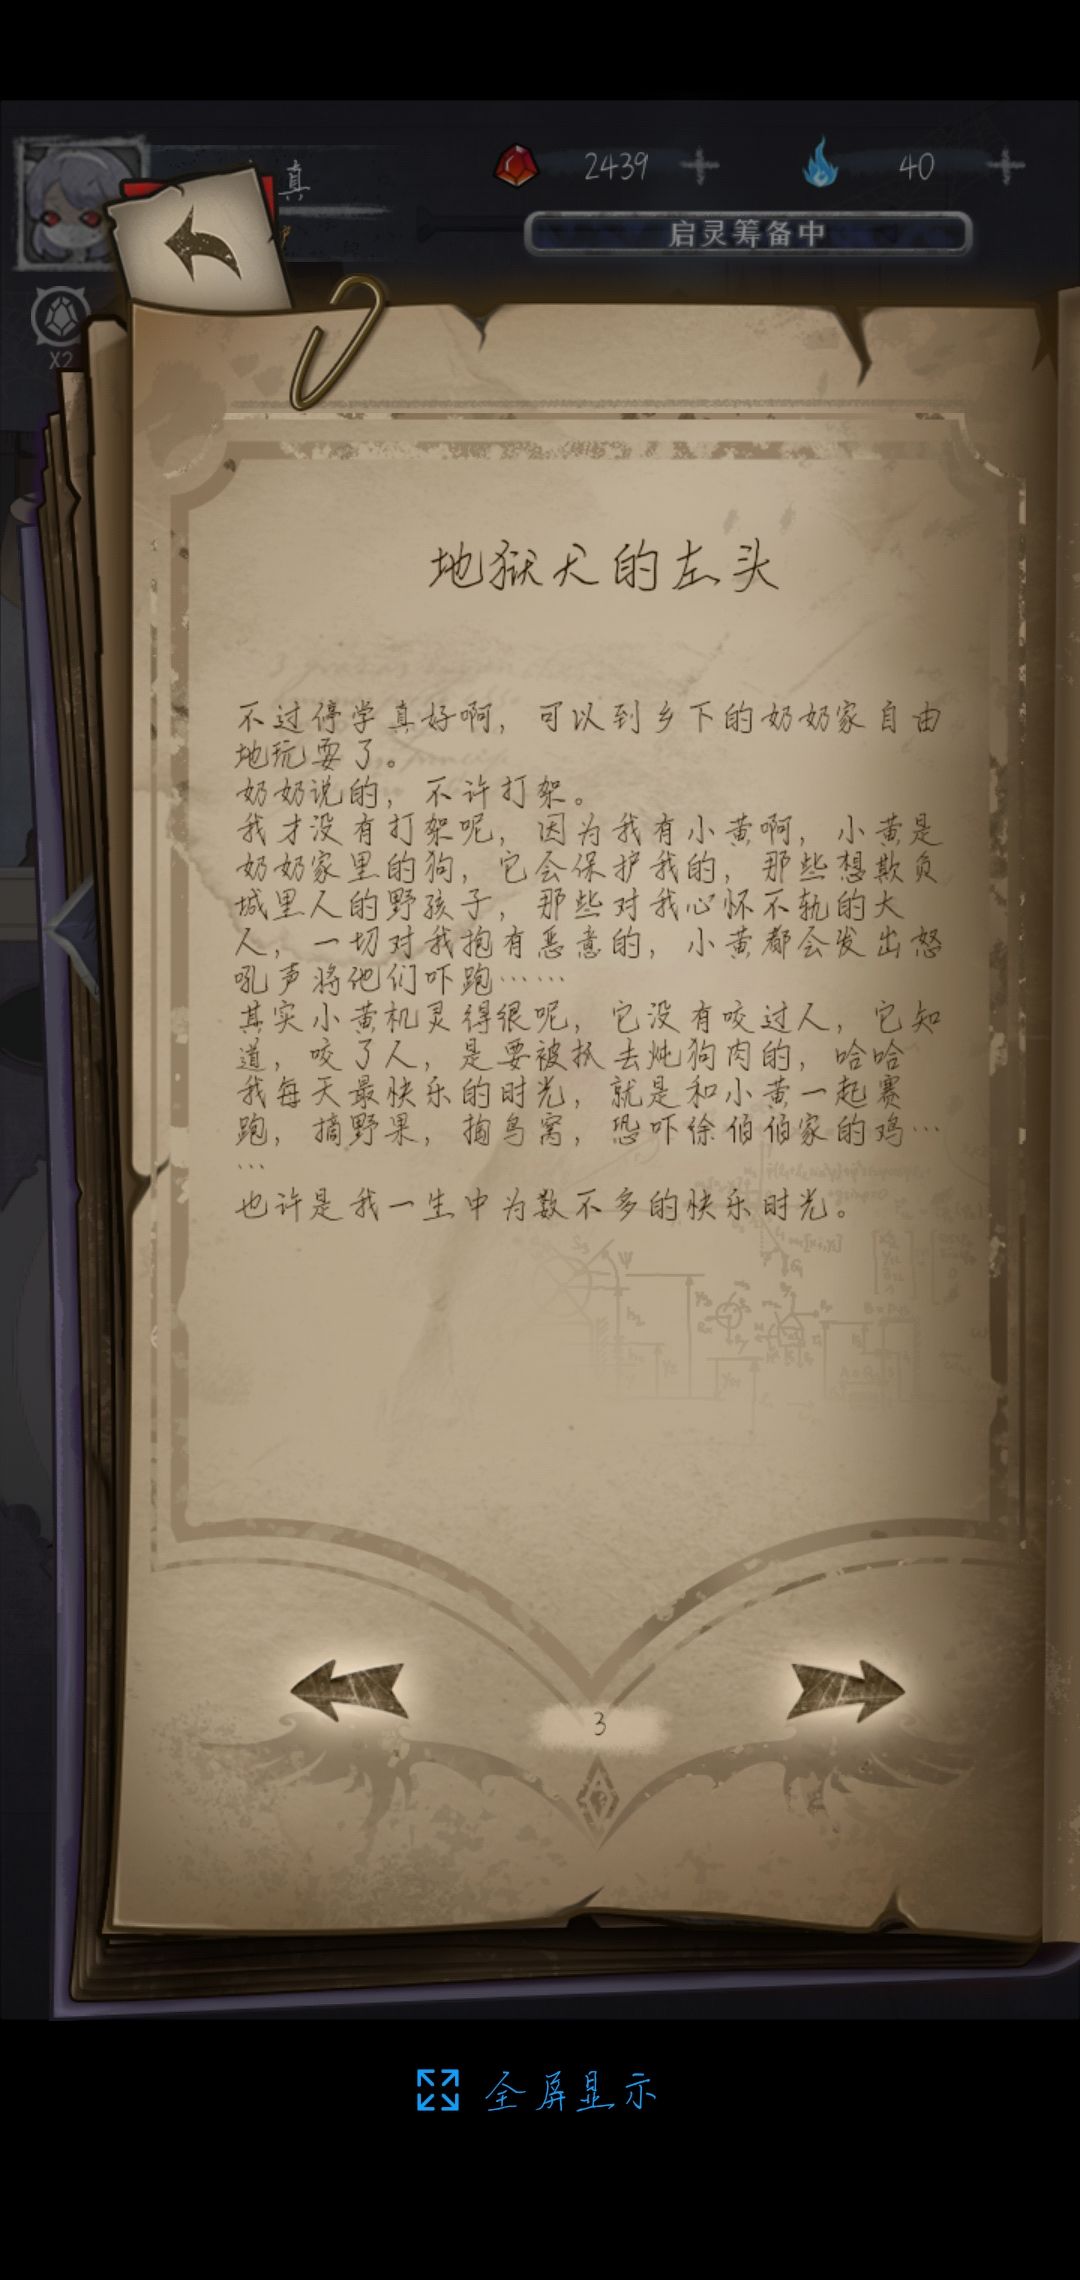 真
2439
40
启灵筹备中
X2
地狱犬的左头
不过停学真好啊，可以到乡下的奶奶家自由
地玩耍了。
奶奶说的，不许打架。
我才没有打架呢，因为我有小黄啊，小黄是
奶奶家里的狗，它会保护我的，那些想欺负
城里人的野孩子，那些对我心怀不轨的大
人，一切对我抱有恶意的，小黄都会发出怒
吼声将他们吓跑……
其实小黄机灵得很呢，它没有咬过人，它知
道，咬了人，是要被抓去炖狗肉的，哈哈
我每天最快乐的时光，就是和小黄一起赛
跑，摘野果，掏鸟窝，恐吓徐伯伯家的鸡…
…
也许是我一生中为数不多的快乐时光。
3
全屏显示